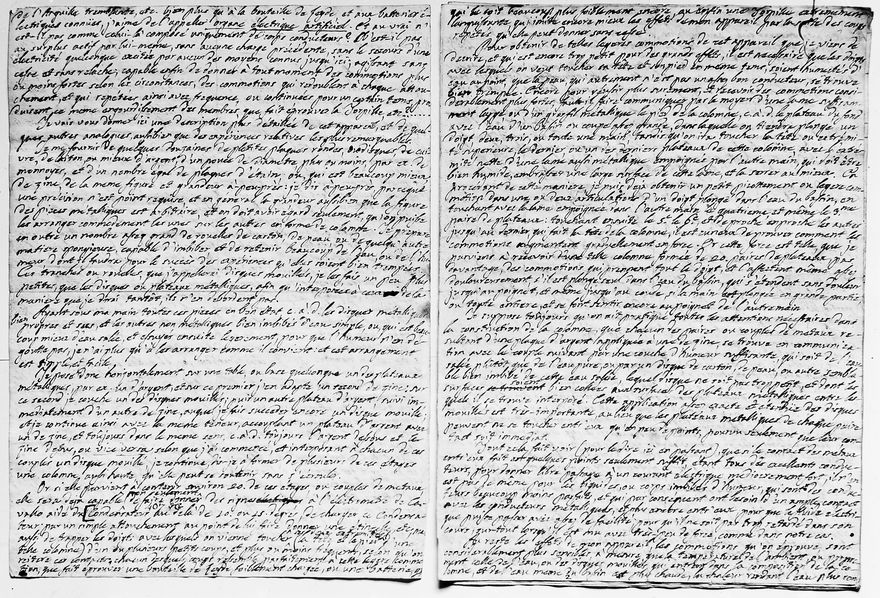 de l'Anguille tremblante, etc. bien plus qu'à la bouteille de Leyde, et aux batteries é-
lectriques connues, j'aime de l'appeller organe electrique artificiel: et au vrai n'
est-il pas comme celui-là composé uniquement de corps conducteurs? N'est-il pas
au surplus actif par lui-meme, sans aucune charge précédente, sans le secours d'une
électricité quelconque excitée par aucun des moyens connus jusqu'ici; agissant sans
cesse et sans relache; capable enfin de donner à tout moment des commotions plus
ou moins fortes selon les circonstances, des commotions qui redoublent à chaque attou-
chement, et qui répetées ainsi avec frequence, ou continuées pour un certain tems, pro-
duisent ce meme engourdissement des membres que fait éprouver la Torpille etc.
Je vais vous donner ici une description plus détaillée de cet appareil, et de quel-
ques autres analogues, aussi bien que des expériences relatives les plus remarquables.
Je me fournis de quelques douzaines de petites plaques rondes ou disques, de cui-
vre, de laiton, ou mieux d'argent, d'un pouce de diamètre plus ou moins, par ex. de
monnoyes, et d'un nombre égal de plaques d'étain, ou, qui est beaucoup mieux,
de zinc, de la meme figure et grandeur à-peu-près: je dis à-peu-près, parceque
une précision n'est point requise, et en général la grandeur aussi bien que la figure
des pièces metalliques est arbitraire, et on doit avoir égard seulement, qu'on puisse
les arranger commodement les unes sur les autres en forme de colonne. Je prepare
en outre un nombre assez grand de rouelles de carton, de peau, ou de quelque autre
matiere spongieuse, capable d'imbiber et de retenir beaucoup de l'eau, ou de l'hu-
meur dont il faudra pour le succès des expériences qu'elles soient bien trempées.
Ces tranches ou rouelles, que j'appellerai disques mouillés, je les fais un peu plus
petites, que les disques ou plateaux métalliques, afin qu'interposées à eux de la
maniere que je dirai tantôt, ils n'en débordent pas.
Ayant sous ma main toutes ces pieces en bon état, c.a.d. les disques metalliques
bien propres et secs, et les autres non metalliques bien imbibés d'eau simple, ou, qui est beau-
coup mieux, d'eau salée, et essuyés ensuite légerement, pour que l'humeur n'en dé-
goutte pas, je n'ai plus qu'à les arranger comme il convient: et cet arrangement
est simple et facile.
Je pose donc horizontalement sur une table, ou base quelconque un des plateaux
metalliques, par ex. un d'argent, et sur ce premier j'en adapte un second de zinc; sur
ce second je couche un des disques mouillés; puis un autre plateau d'argent, suivi im-
médiatement d'un autre de zinc, auquel je fais succéder encore un disque mouillé:
et je continue ainsi de la meme façon, accouplant un plateau d'argent avec
un de zinc, et toujours dans le meme sens, c.a.d. toujours l'argent dessous et le
zinc dessus, ou vice versa selon que j'ai commencé, et interposant à chacun de ces
couples un disque mouillé; je continue, dis-je, à former de plusieurs de ces étages
une colonne aussi haute qu'elle peut se soutenir sans s'écrouler.
Or si elle parvient à contenir environ 20 de ces étages ou couples de metaux,
elle sera déjà capable, non seulement de faire donner des signes à l'électromètre de Ca-
vallo aidé du Condensateur au delà de 10 ou 15 degrés, de charger ce Condensa-
teur par un simple attouchement au point de lui faire donner une étincelle, etc.
aussi de frapper les doigts avec lesquels on vient toucher ses deux extrémités
telle colonne, d'un ou plusieurs petits coups, et plus ou moins fréquents, selon qu'on
réitere ces contacts; chacun desquels coups ressemble parfaitement à cette légère commo-
tion, que fait éprouver une bouteille de Leyde foiblement chargée, ou une batterie
qui le soit beaucoup plus foiblement encore, ou enfin une Torpille extremement
languissante, qui imite encore mieux les effets de mon appareil par la suite des coups
répétés qu'elle peut donner sans cesse.
Pour obtenir de telles légeres commotions de cet appareil que je viens de
décrire, et qui est encore trop petit pour des grands effets, il est nécessaire que les doigts,
avec lesquels on veut toucher ses deux extrémités en meme tems, soient humectés d'eau,
au point que la peau, qui autrement n'est pas un assez bon conducteur, se trouve
bien trempée. Encore pour réussir plus surement, et recevoir des commotions consi-
dérablement plus fortes, faut-il faire communiquer par le moyen d'une lame suffisam-
ment large, ou d'un gros fil metallique le pied de la colonne, c.a.d. le plateau du fond
avec l'eau d'un bassin ou coupe assez grande, dans laquelle on tiendra plongé un
doigt, deux, trois, ou toute une main, tandis qu'on ira toucher la tête ou extrémi-
té supérieure, le dernier ou un des derniers plateaux de cette colonne, avec l'extré-
mité nette d'une lame aussi metallique empoignée par l'autre main, qui doit être
bien humide, embrasser une large surface de cette lame, et la serrer au mieux. En
procedant de cette manière, je puis déjà obtenir un petit picottement ou légère com-
motion dans une ou deux articulations d'un doigt plongé dans l'eau du bassin, en
touchant avec la lame empoignée dans l'autre main le quatrieme et même le 3.me
paire de plateaux: touchant ensuite le 5.e, le 6.e, et de proche en proche les autres
jusqu'au dernier qui fait la tête de la colonne, il est curieux d'éprouver comment les
commotions augmentent graduellement en force. Or cette force est telle que je
parviens à recevoir d'une telle colonne formée de 20 paires de plateaux pas
davantage, des commotions qui prennent tout le doigt, et l'affectent même assez
douloureusement, s'il est plongé seul dans l'eau du bassin; qui s'étendent sans douleur
jusqu'au poignet, et même jusqu'au coude, si la main est plongée en grande partie,
ou toute entière, et se font sentir encore au poignet de l'autre main.
Je suppose toujours qu'on ait pratiqué toutes les attentions necéssaires dans
la construction de la colonne, que chacune des paires ou couples de metaux ré-
sultant d'une plaque d'argent appliquée à une de zinc, se trouve en communica-
tion avec le couple suivant par une couche d'humeur suffisante, qui soit de l'eau
salée plutôt que de l'eau pure, ou par un disque de carton, de peau, ou autre sembla-
ble bien imbibé de cette eau salée, lequel disque ne soit pas trop petit, et dont les
surfaces soient bien collées aux surfaces des plateaux metalliques entre les-
quels il se trouve interposé. Cette application assez exacte et étendue des disques
mouillés est très-importante, au lieu que les plateaux metalliques de chaque paire
peuvent ne se toucher entr'eux qu'en peu de points, pourvu seulement que leur con-
tact soit immédiat.
Tout cela fait voir (pour le dire ici en passant) que si le contact des metaux
entr'eux fait en quelques points seulement suffit, étant tous des excellents conduc-
teurs, pour donner libre passage à un courant électrique mediocrement fort, il n'en
est pas de meme pour les liquides ou corps imbibés d'humeur, qui sont des conduc-
teurs beaucoup moins parfaits, et qui par conséquent ont besoin d'un ample contact
avec les conducteurs metalliques, et plus encore entr'eux, pour que le fluide électri-
que puisse passer avec assez de facilité, et pour qu'il ne soit pas trop retardé dans son
cours, surtout lorsqu'il est mu avec très-peu de force, comme dans notre cas.
Au reste les effets de mon appareil (les commotions qu'on éprouve) sont
considérablement plus sensibles à mesure que la température de l'ambient, ou seule-
ment celle de l'eau, ou des disques mouillés, qui entrent dans la composition de la co-
lonne, et de l'eau meme du bassin est plus chaude; la chaleur rendant l'eau plus con-